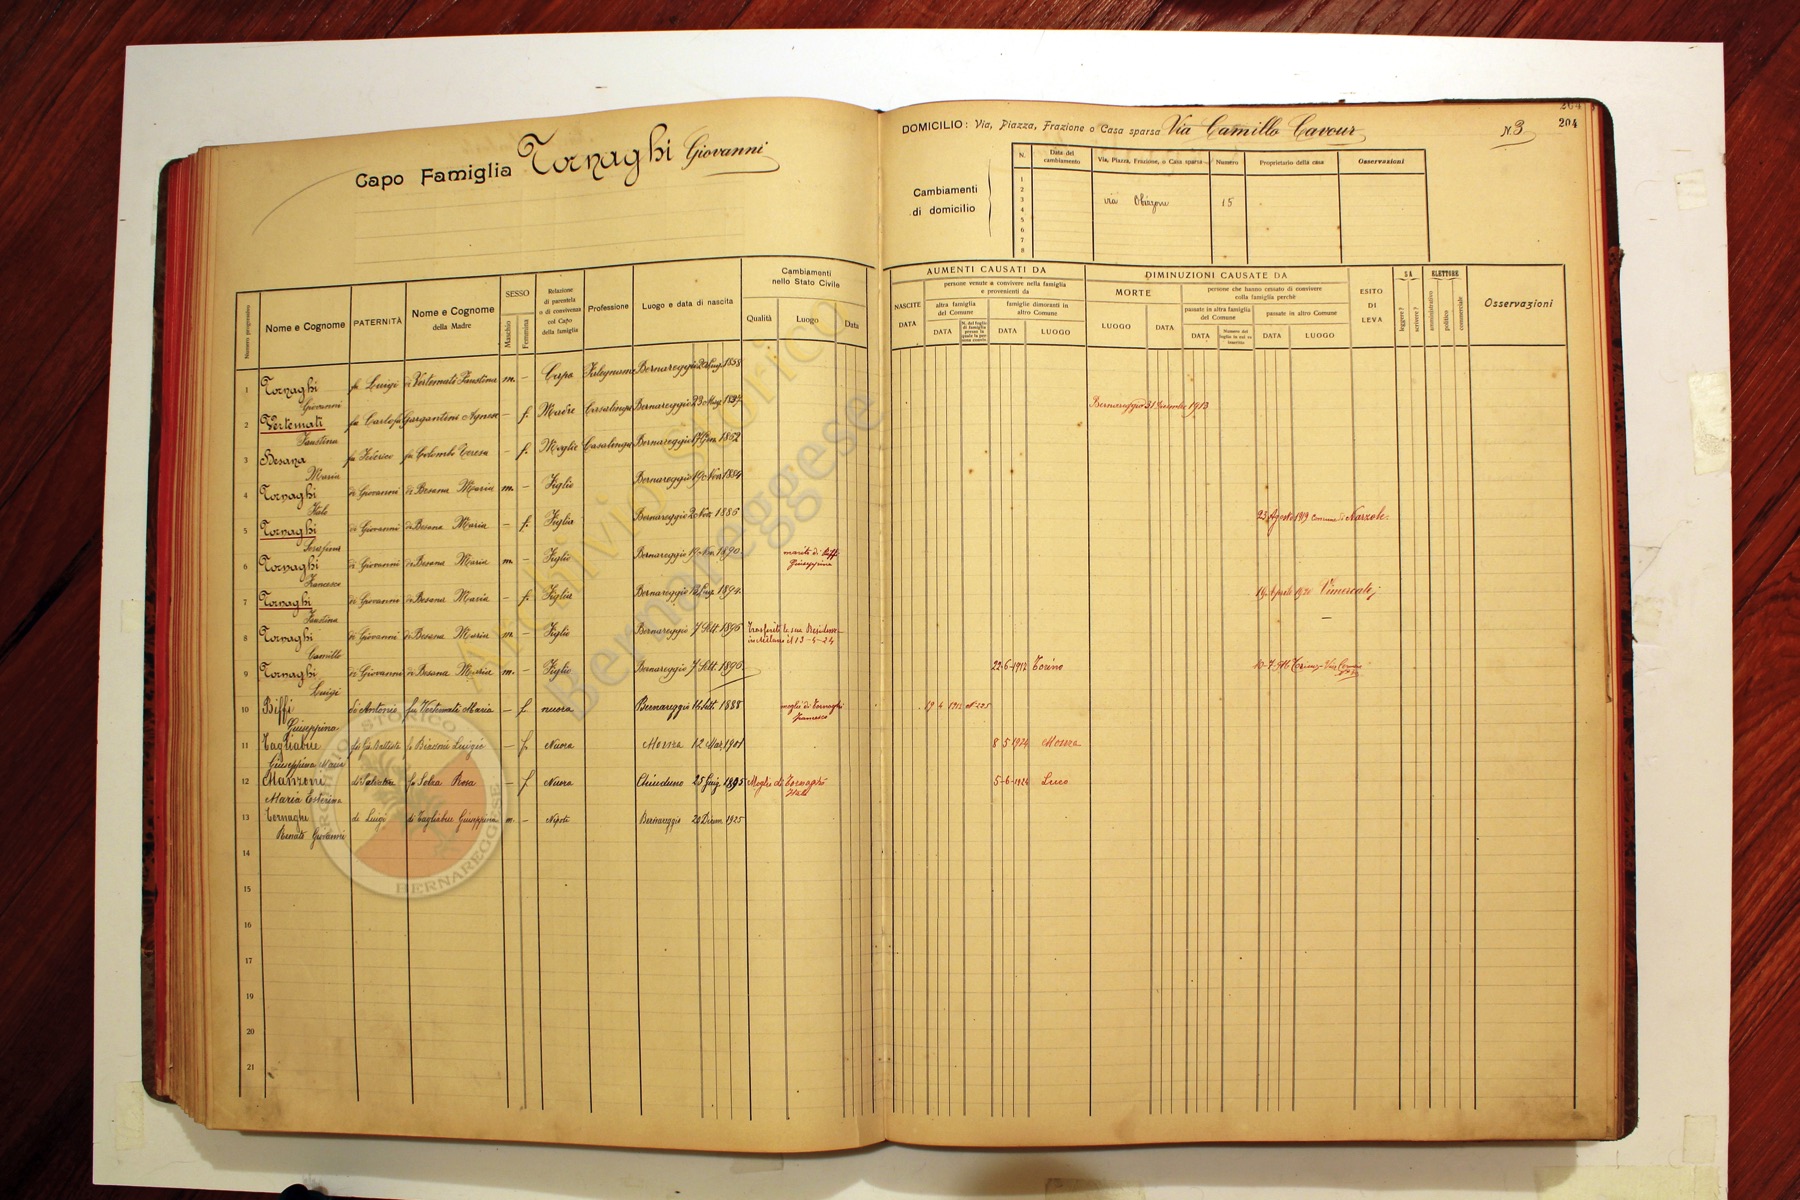 Capo Famiglia Tornaghi Giovanni
204
DOMICILIO: Via, Piazza, Frazione o Casa sparsa Via Camillo Cavour N. 3
204
Cambiamenti di domicilio
N. Data del cambiamento Via, Piazza, Frazione, o Casa sparsa Numero Proprietario della casa Osservazioni
1
2
3 via 15
4
5
6
7
8
Numero progressivo Nome e Cognome PATERNITÀ Nome e Cognome della Madre SESSO Maschio Femmina Relazione di parentela o di convivenza col Capo della famiglia Professione Luogo e data di nascita Cambiamenti nello Stato Civile Qualità Luogo Data
NASCITE DATA AUMENTI CAUSATI DA persone venute a convivere nella famiglia e provenienti da altra famiglia del Comune DATA famiglie dimoranti in altro Comune DATA LUOGO
DIMINUZIONI CAUSATE DA MORTE LUOGO DATA persone che hanno cessato di convivere colla famiglia perchè passate in altra famiglia del Comune DATA passate in altro Comune DATA LUOGO
ESITO DI LEVA SA leggere? scrivere? ELETTORE amministrativo politico commerciale Osservazioni
1 Tornaghi Giovanni fu Luigi di Vertemati Faustina m. – Capo Falegname Bernareggio 1858
2 Vertemati Faustina fu Carlo fu Gargantini Agnese – f. Madre Casalinga Bernareggio 23 1837 Bernareggio 31 Dicembre 1913
3 Besana Maria fu Federico fu Colombo Teresa – f. Moglie Casalinga Bernareggio 17 Gen. 1862
4 Tornaghi Italo di Giovanni di Besana Maria m. – Figlio Bernareggio 19 Nov. 1884
5 Tornaghi Serafina di Giovanni di Besana Maria – f. Figlia Bernareggio 2 Nov. 1886 23 Agosto 1919 Comune di Narzole
6 Tornaghi Francesco di Giovanni di Besana Maria m. – Figlio Bernareggio 19 Nov. 1890 marito di Biffi Giuseppina
7 Tornaghi Faustina di Giovanni di Besana Maria – f. Figlia Bernareggio 1894 Aprile 1920 Vimercate
8 Tornaghi Camillo di Giovanni di Besana Maria m. – Figlio Bernareggio 7 Sett. 1896 Trasferito la sua Residenza in Milano il 13-4-24
9 Tornaghi Luigi di Giovanni di Besana Maria m. – Figlio Bernareggio 7 Sett. 1896 22-6-1917 Torino
10 Biffi Giuseppina di Antonio fu Vertemati Maria – f. nuora Bernareggio 16 Sett. 1888 moglie di Tornaghi Francesco 19 4 1913
11 Tagliabue Giuseppina Maria fu Gio Battista Luigia – f. Nuora Monza 12 Mar. 1901 8-5-1924 Monza
12 Manzoni Maria Esterina fu Rosa – f. Nuora Chiuduno 25 Giug. 1895 Moglie di Tornaghi Italo 5-6-1924
13 Tornaghi Renato Giovanni di Luigi di Tagliabue Giuseppina m. – Nipote Bernareggio 20 Dicem. 1925
14
15
16
17
18
19
20
21
Archivio Storico
Bernareggese
ARCHIVIO STORICO
BERNAREGGESE